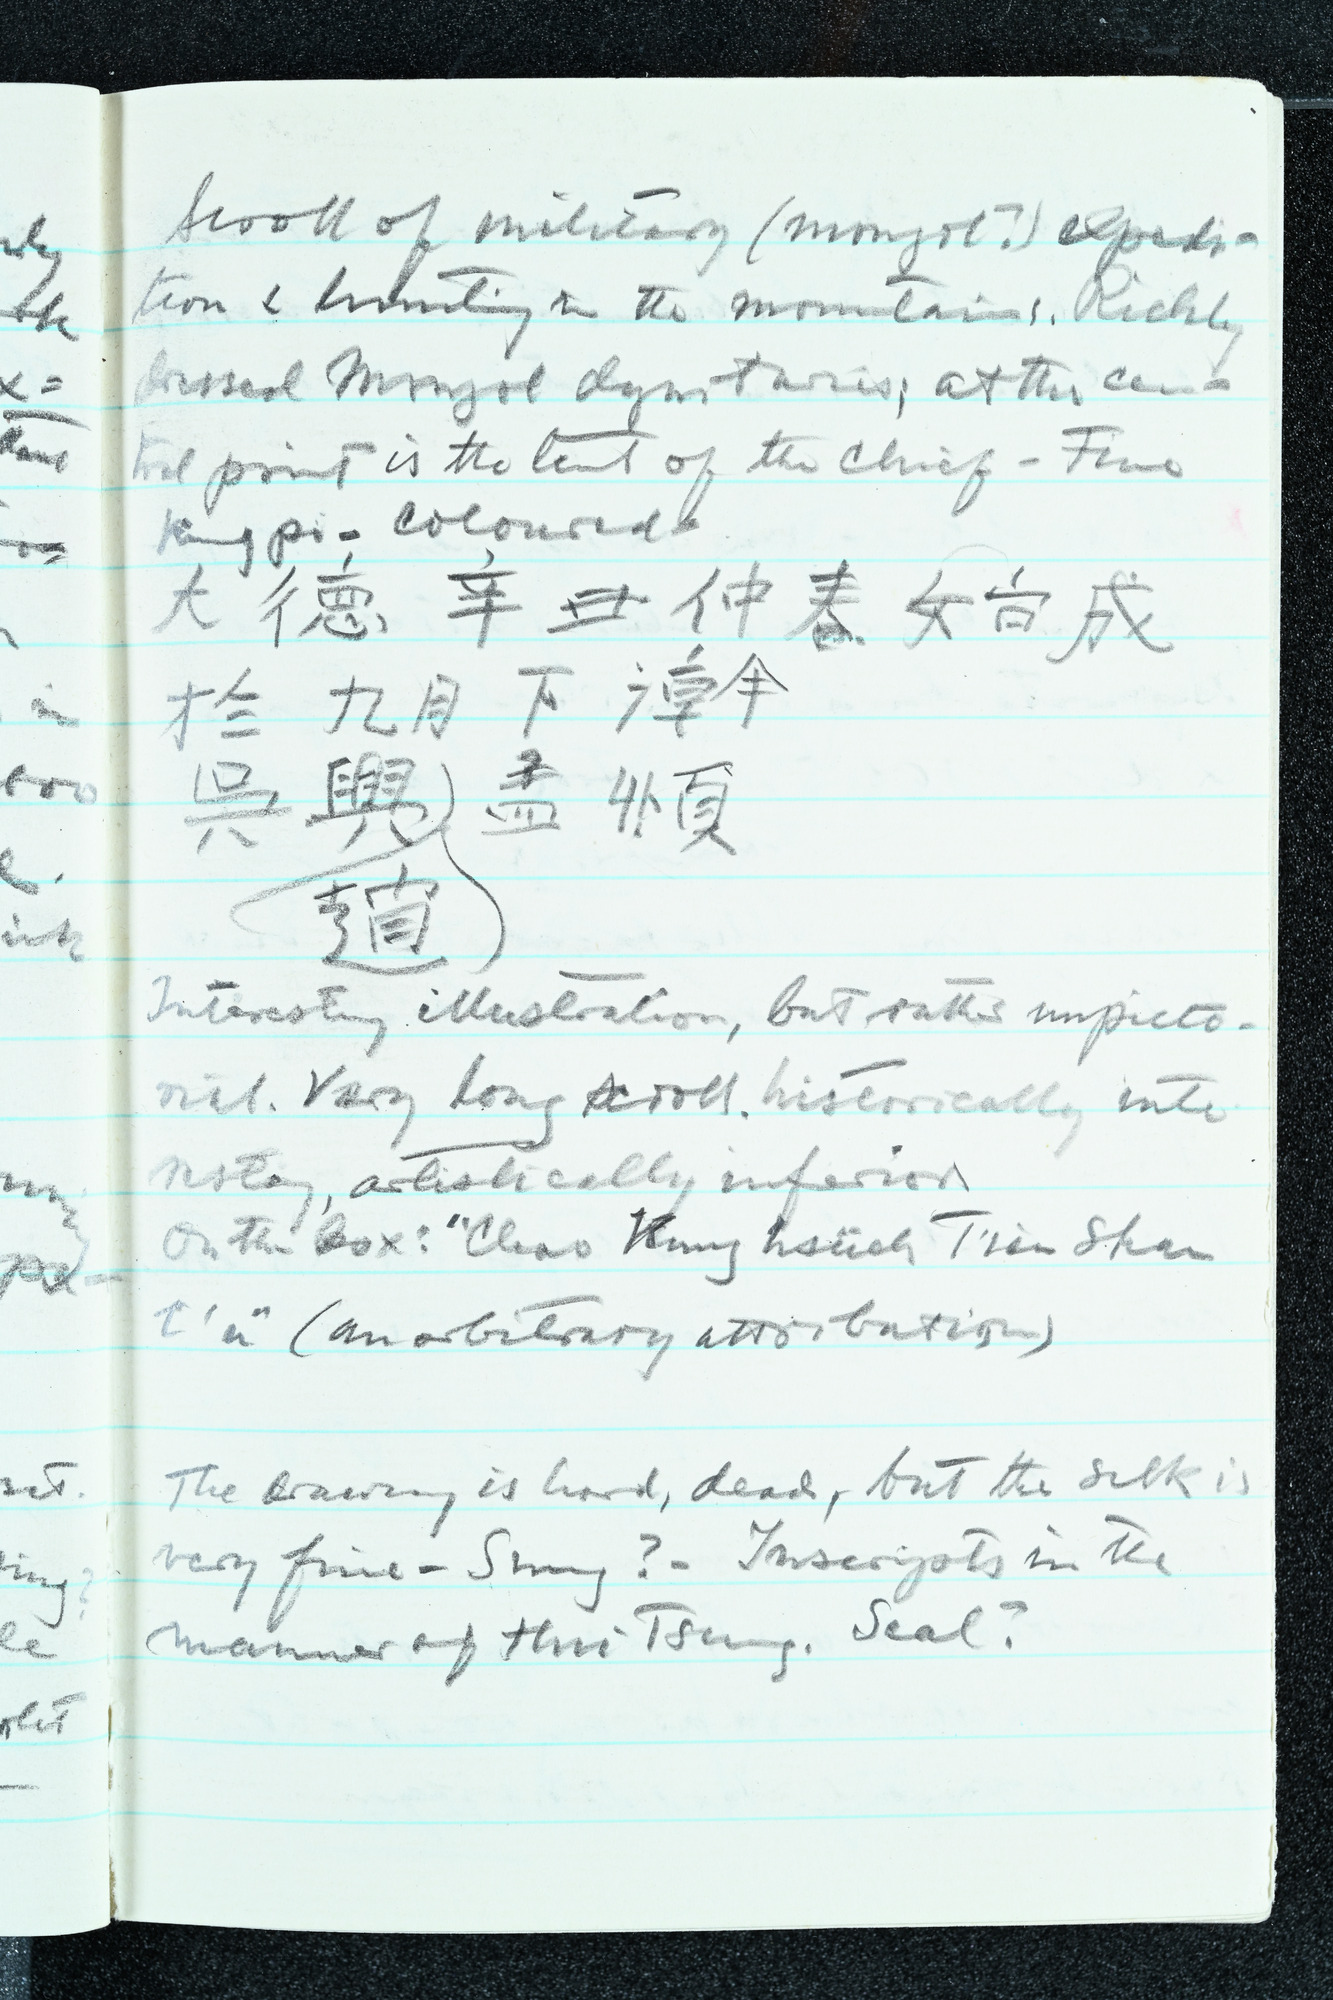 Scroll of military (Mongol?) expedi-
tion & hunting in the mountains. Richly
dressed Mongol dignitaries; at the cen-
tral point is the tent of the chief - Fine
Kung pi - coloured.
大德辛丑仲春始成
於九月下
吳興 孟頫
趙
Interesting illustration, but rather unpicto-
rial. Very long scroll. historically inte
resting, artistically inferior.
On the box: "Chao Kung hsüeh T'ien Shan
t'u" (an arbitrary attribution)
The drawing is hard, dead, but the silk is
very fine - Sung? - Inscripts in the
manner of Hui Tsung. Seal?